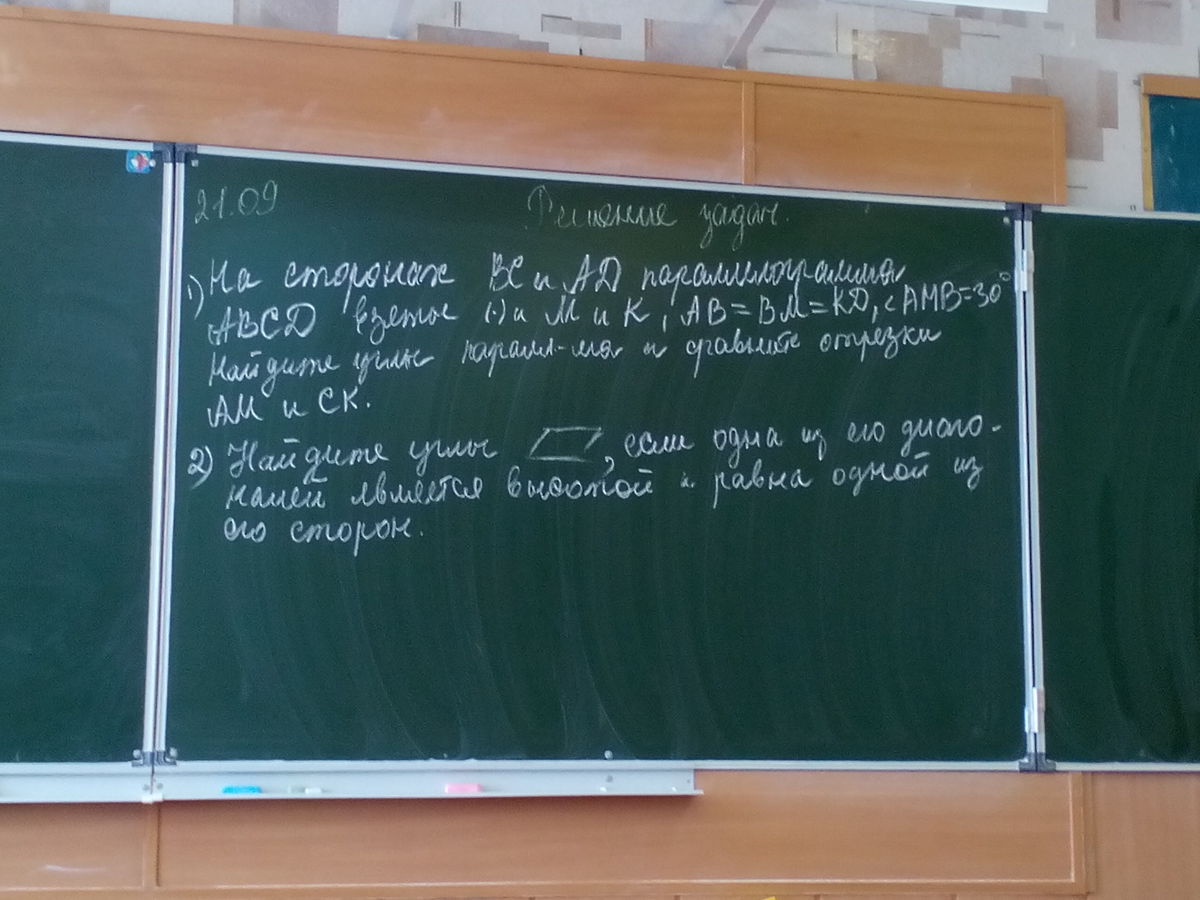 21.09
Решение задач.
1) На сторонах BC и AD параллелограмма
ABCD взяты (·)и M и K, AB=BM=KD, <AMB=30°
Найдите углы паралл-ма и сравните отрезки
AM и CK.
2) Найдите углы ▱, если одна из его диаго-
налей является высотой и равна одной из
его сторон.